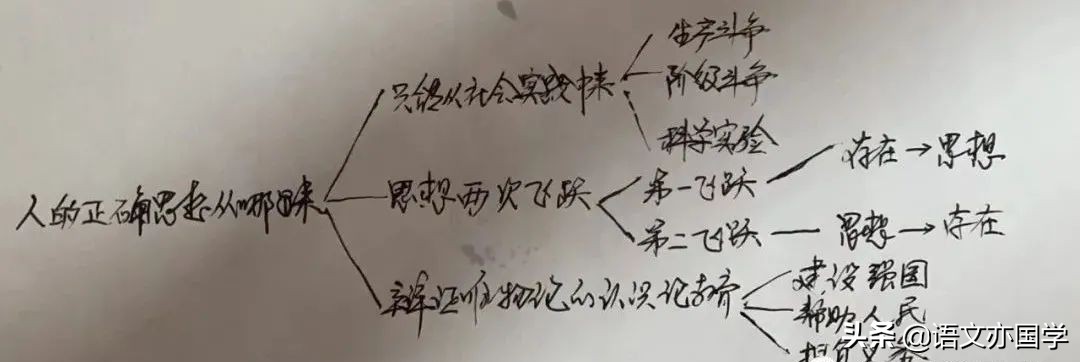 人的正确思想从哪里来
只能从社会实践中来
生产斗争
阶级斗争
科学实验
思想两次飞跃
第一飞跃
存在→思想
第二飞跃
思想→存在
辩证唯物论的认识论教育
建设强国
帮助人民
头条@语文亦国学